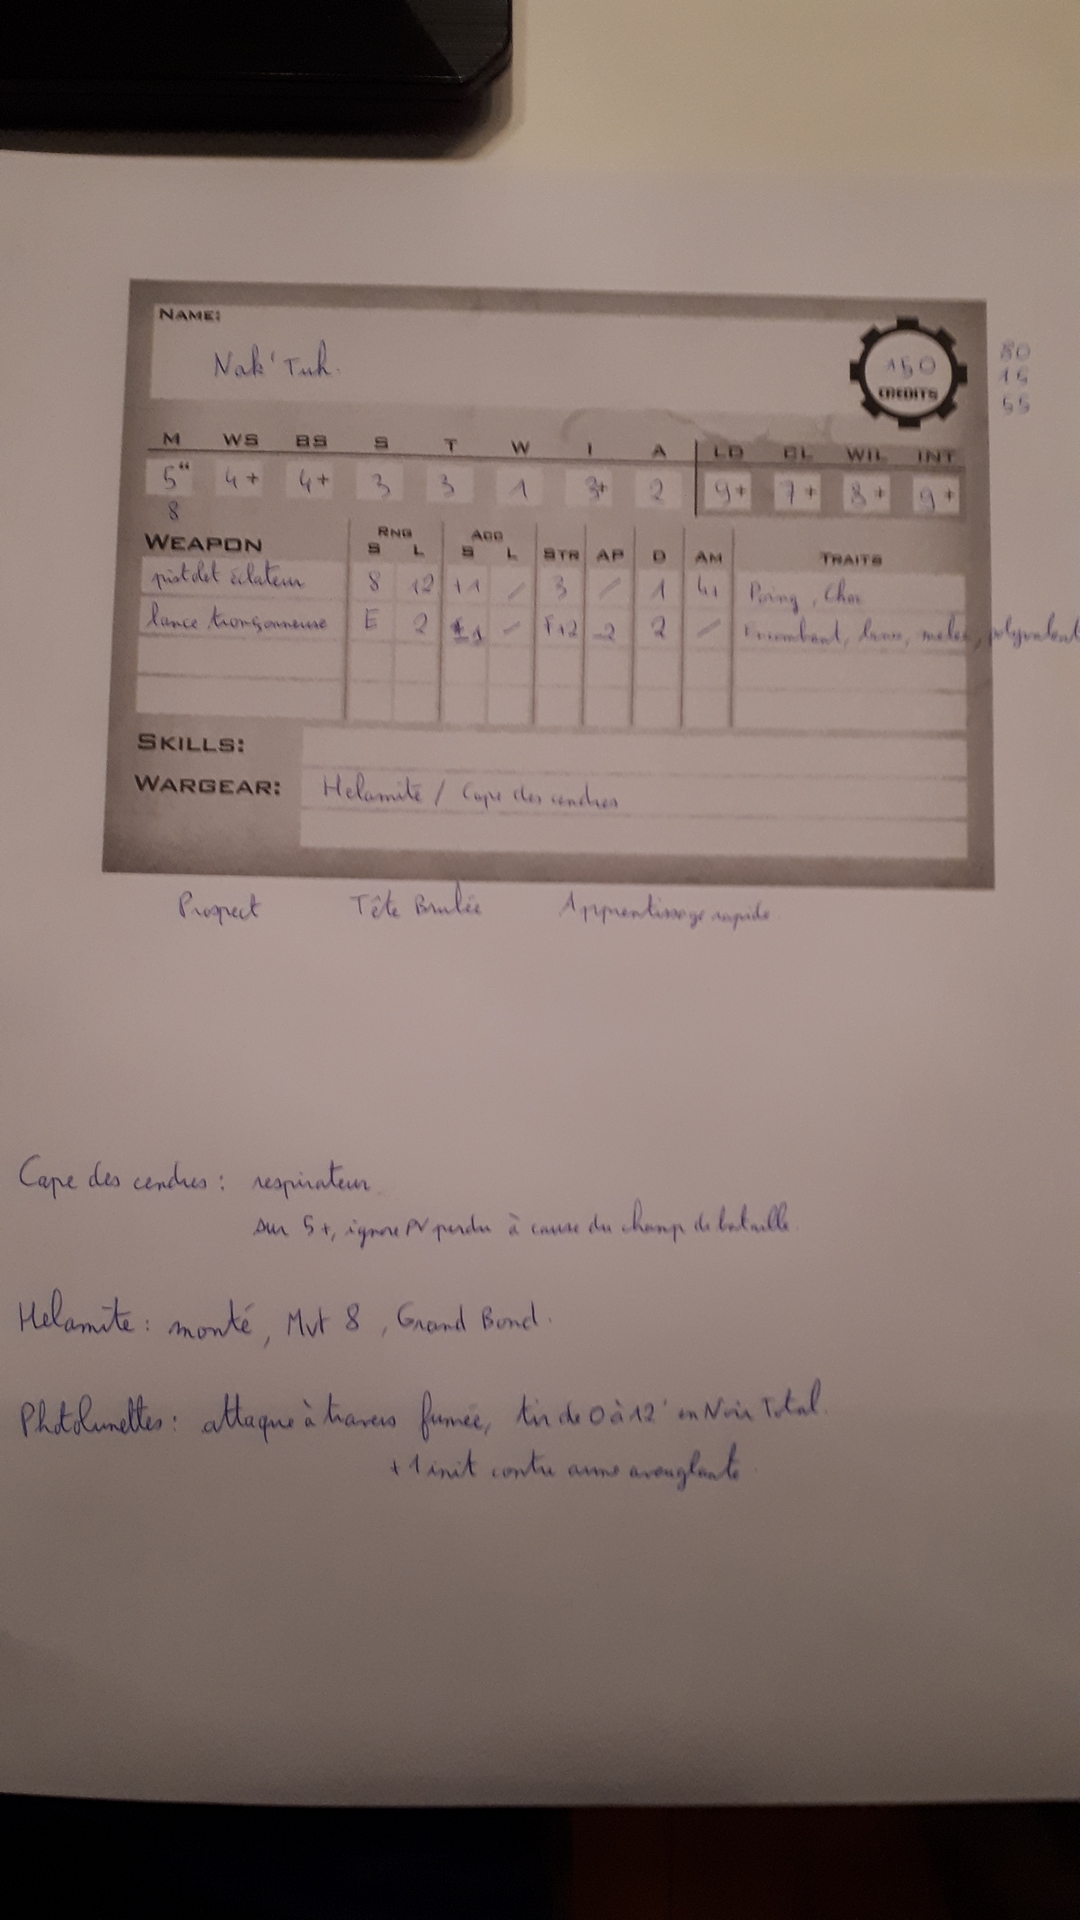 NAME:
Nak'Tuh.
150
CREDITS
80
15
55
M WS BS S T W I A LD CL WIL INT
5" 4+ 4+ 3 3 1 3+ 2 9+ 7+ 8+ 9+
8
RNG ACC
WEAPON S L S L STR AP D AM TRAITS
pistolet éclateur 8 12 +1 / 3 / 1 4+ Poing, Choc
lance tronçonneuse E 2 +1 - F+2 -2 2 / Encombant, lance, melee, polyvalent
SKILLS:
WARGEAR: Helamite / Cape des cendres
Prospect Tête Brulée Apprentissage rapide
Cape des cendres : respirateur
sur 5+, ignore PV perdu à cause du champ de bataille.
Helamite : monté, Mvt 8, Grand Bond.
Photolunettes : attaque à travers fumée, tir de 0 à 12' en Noir Total.
+1 init contre arme aveuglante